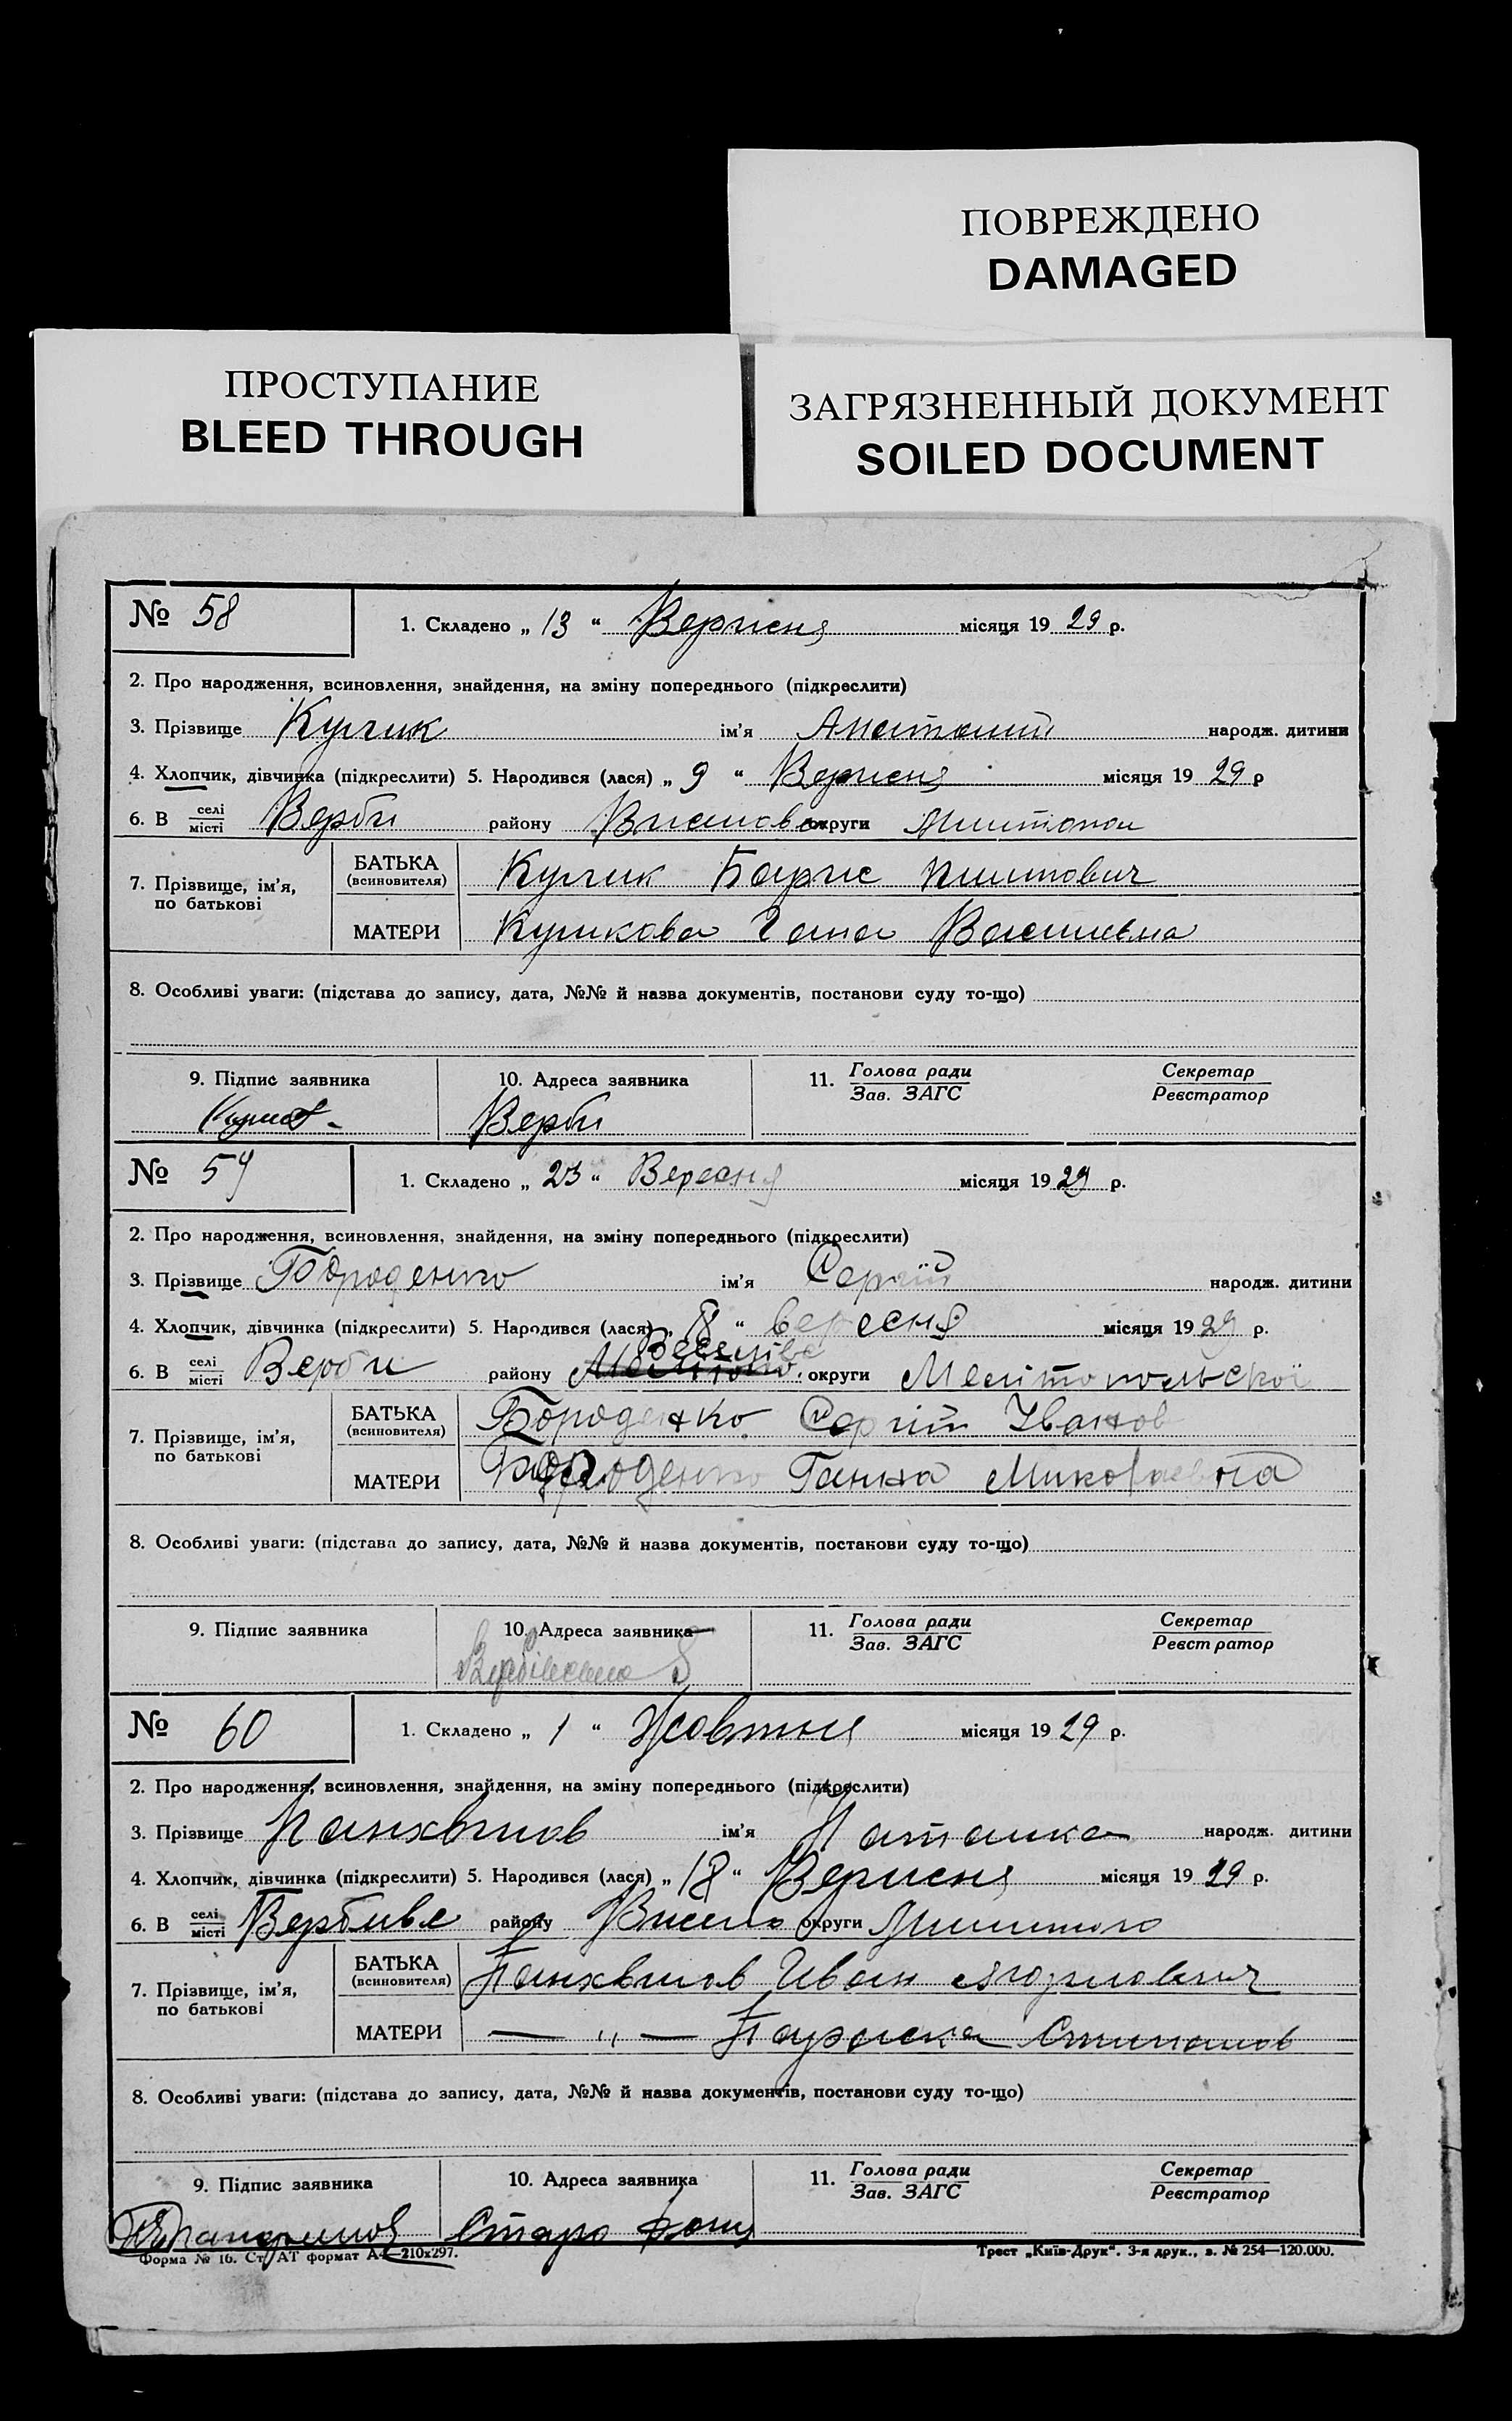 ПОВРЕЖДЕНО
DAMAGED
ПРОСТУПАНИЕ
BLEED THROUGH
ЗАГРЯЗНЕННЫЙ ДОКУМЕНТ
SOILED DOCUMENT
№ 58 1. Складено „ 13 “ Верисня місяця 19 29 р.
2. Про народження, всиновлення, знайдення, на зміну попереднього (підкреслити)
3. Прізвище Кулик ім'я народж. дитини
4. Хлопчик, дівчинка (підкреслити) 5. Народився (лася) „ 9 “ Верисня місяця 19 29 р
6. В селі/місті Верби району округи
7. Прізвище, ім'я, по батькові
БАТЬКА (всиновителя) Кулик Борис
МАТЕРИ Куликова Васильевна
8. Особливі уваги: (підстава до запису, дата, №№ й назва документів, постанови суду то-що)
9. Підпис заявника 10. Адреса заявника 11. Голова ради/Зав. ЗАГС Секретар/Реєстратор
Верби
№ 59 1. Складено „ 23 “ Вересня місяця 19 29 р.
2. Про народження, всиновлення, знайдення, на зміну попереднього (підкреслити)
3. Прізвище Бороденко ім'я Сергій народж. дитини
4. Хлопчик, дівчинка (підкреслити) 5. Народився (лася) „ “ вересня місяця 19 29 р.
6. В селі/місті Верби району Веселівс округи Мелітопольскої
7. Прізвище, ім'я, по батькові
БАТЬКА (всиновителя) Бороденко Сергій Іванов
МАТЕРИ Бороденко Ганна Миколаевна
8. Особливі уваги: (підстава до запису, дата, №№ й назва документів, постанови суду то-що)
9. Підпис заявника 10. Адреса заявника 11. Голова ради/Зав. ЗАГС Секретар/Реєстратор
№ 60 1. Складено „ 1 “ Жовтня місяця 19 29 р.
2. Про народження, всиновлення, знайдення, на зміну попереднього (підкреслити)
3. Прізвище Панхвилов ім'я Наташка народж. дитини
4. Хлопчик, дівчинка (підкреслити) 5. Народився (лася) „ 18 “ Верисня місяця 19 29 р.
6. В селі/місті Вербиве району Висело округи
7. Прізвище, ім'я, по батькові
БАТЬКА (всиновителя) Панхвилов Иван
МАТЕРИ — „ — Параска Стипанов
8. Особливі уваги: (підстава до запису, дата, №№ й назва документів, постанови суду то-що)
9. Підпис заявника 10. Адреса заявника 11. Голова ради/Зав. ЗАГС Секретар/Реєстратор
Старо
Форма № 16. Ст. АТ формат А4—210х297. Трест „Київ-Друк“. 3-я друк., з. № 254—120.000.